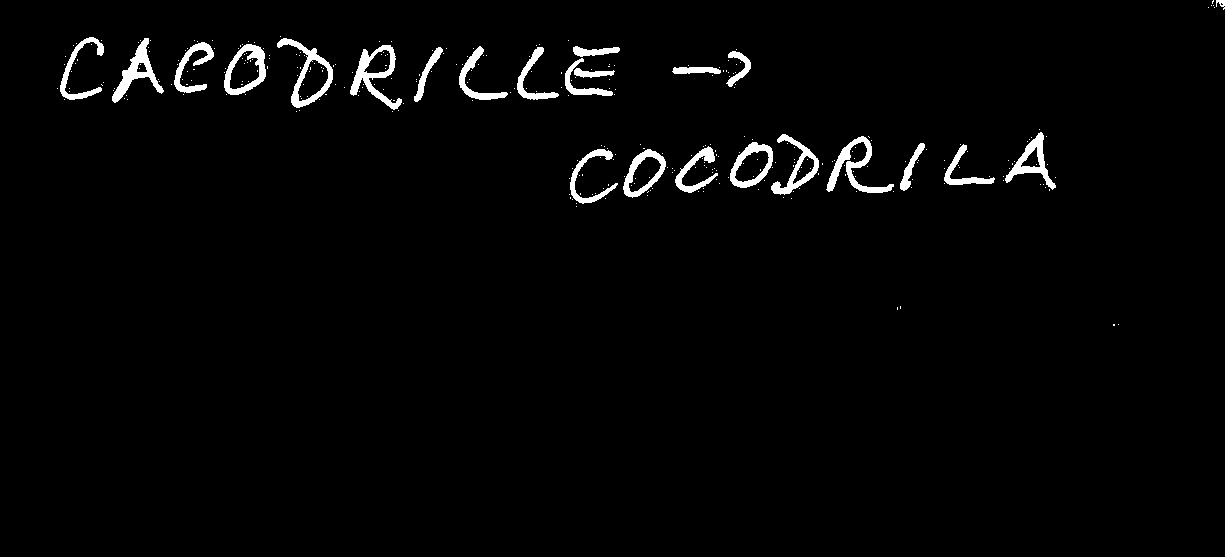 CACODRILLE →
COCODRILA